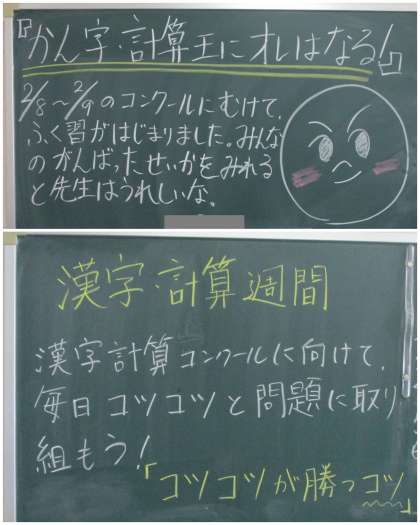 『かん字・計算王にオレはなる!』
2/8〜2/9のコンクールにむけて、
ふく習がはじまりました。みんな
のがんばったせいかをみれる
と先生はうれしいな。
漢字・計算週間
漢字計算コンクールに向けて、
毎日コツコツと問題に取り
組もう!
「コツコツが勝つコツ」